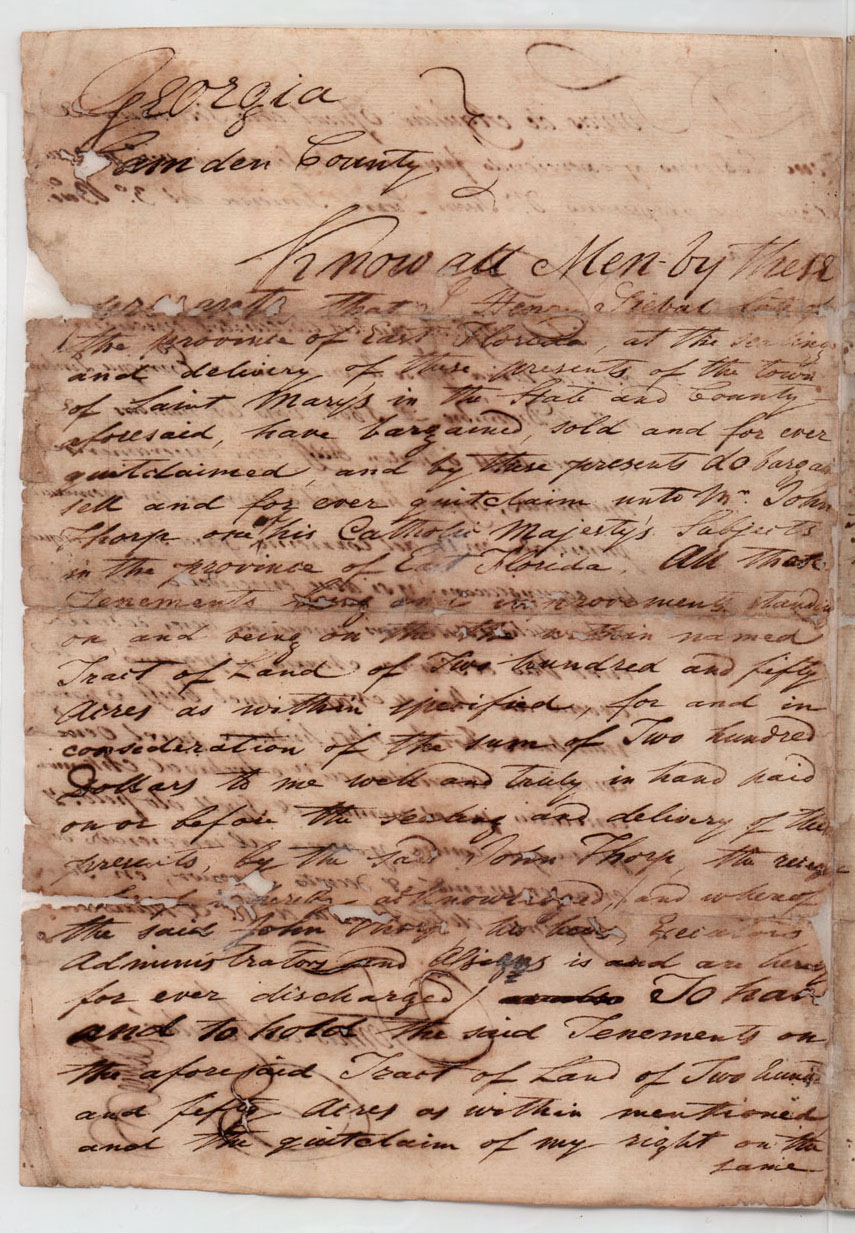 Georgia
Camden County
Know all Men by these
presents that I Henry
the province of East Florida, at the sealing
and delivery of these presents of the town
of Saint Mary's in the State and County
aforesaid, have bargained, sold and for ever
quitclaimed, and by these presents do bargai
sell and for ever quitclaim unto Mr. John
Thorp one of his Catholic Majesty's Subjects
in the province of East Florida, All those
Tenements and improvements standi
on and being on the within named
Tract of Land of Two hundred and fifty
Acres as within specified, for and in
consederation of the sum of Two hundred
Dollars to me well and truly in hand paid
on or before the sealing and delivery of these
presents, by the said John Thorp, the recei
hereby acknowledged, and whereof
the said John Thorp his heirs, Executors
Administrators and Assigns is and are hereby
for ever discharged To have
and to hold the said Tenements on
the aforesaid Tract of Land of Two hund
and fifty Acres as within mentioned
and the quitclaim of my right on the
same